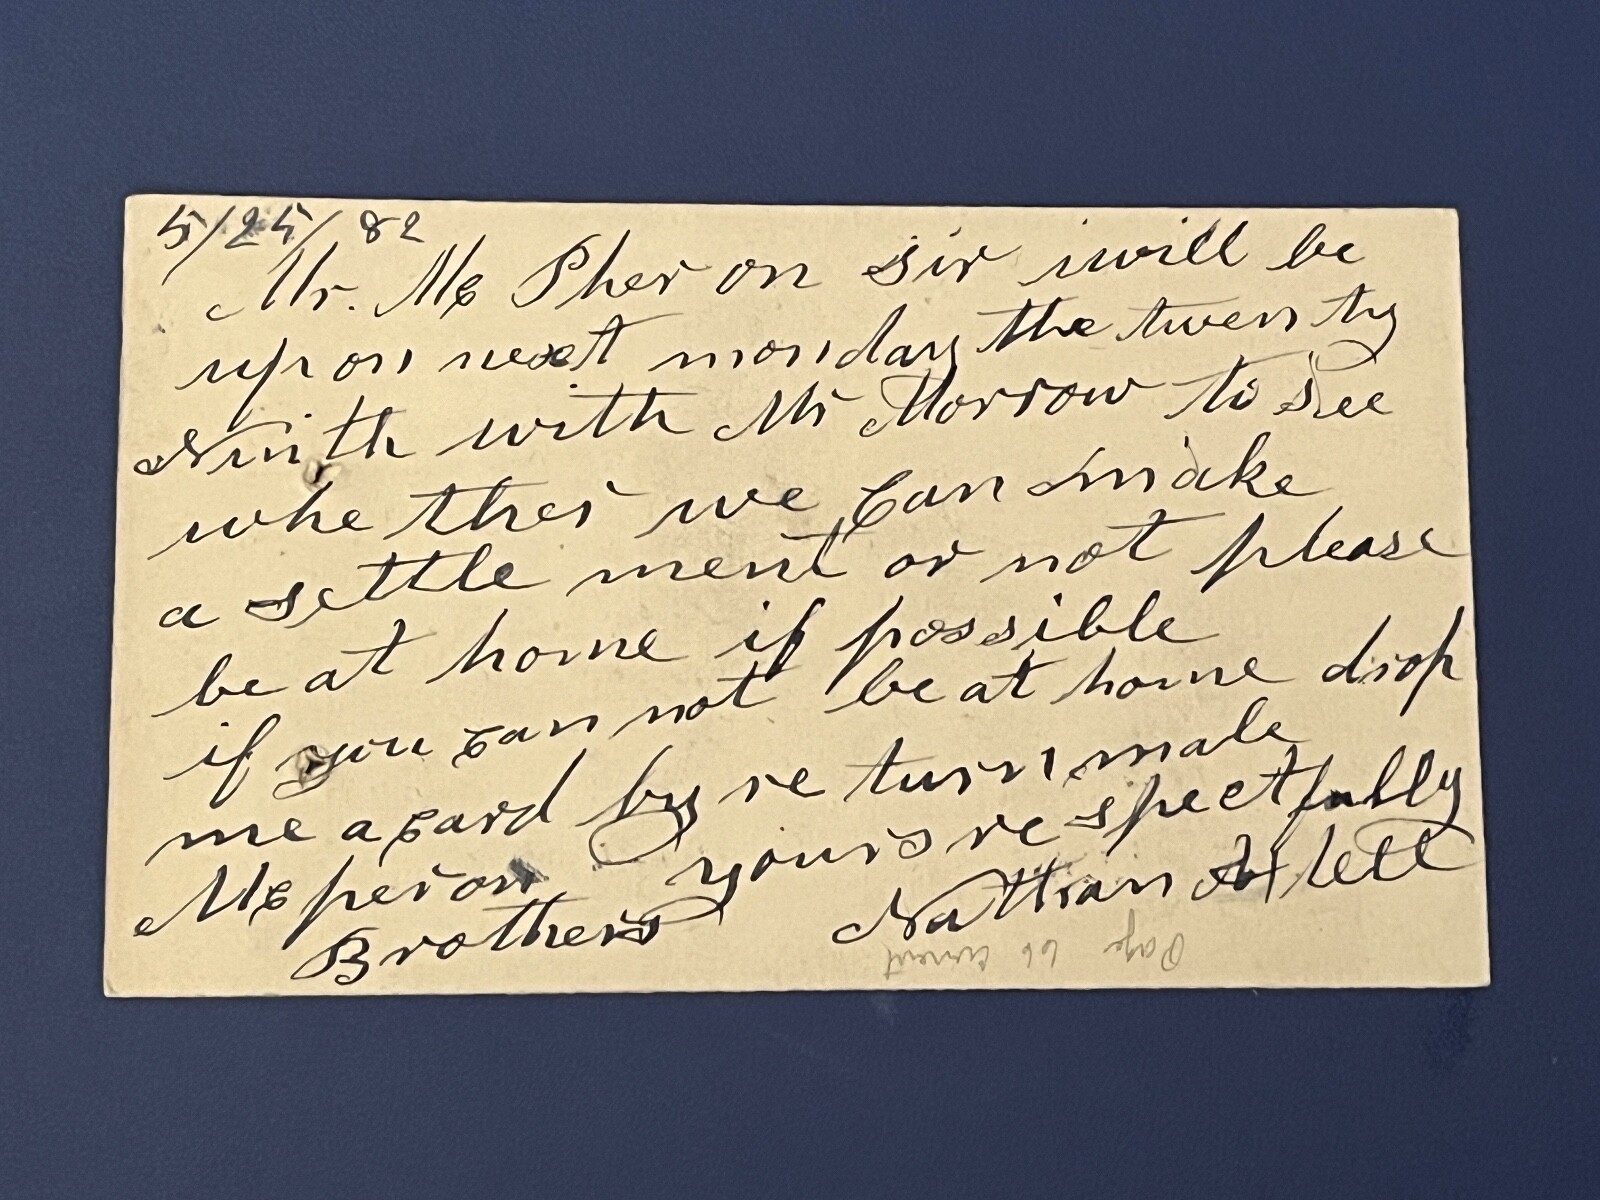 5/25/82
Mr. Mc Pher on sir i will be
up on next monday the twen ty
Ninth with Mr Morrow to see
whe ther we Can make
a settle ment or not please
be at home if possible
if you can not be at home drop
me a card by re turn male
Mc peron yours re spectfully
Brothers Nathan
Page 66